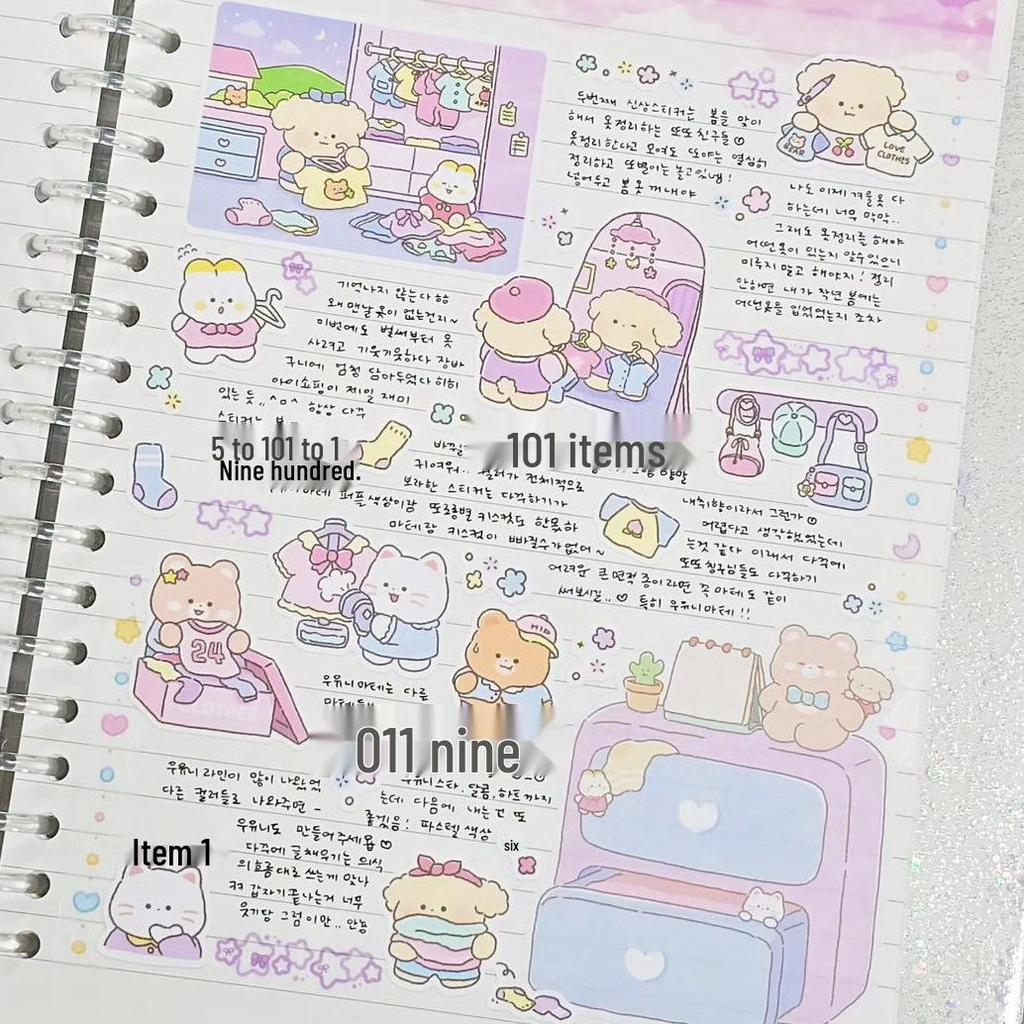 두번째 신상스티커는 봄을 맞이
해서 옷정리하는 또또친구들
옷정리한다고 모여도 또야는 열심히
정리하고 또별이는 놀고있넹!
넣어두고 봄옷 꺼내야
BEAR
LOVE
CLOTHES
나도 이제 겨울옷 다
하는데 너무 막막..
그래도 옷정리를 해야
어떤옷이 있는지 알수있으니
미루지 말고 해야지! 정리
안하면 내가 작년 봄에는
어떤옷을 입었었는지 조차
기억나지 않는다 하하
왜 맨날 옷이 없는건지~
이번에도 벌써부터 옷
사려고 기웃기웃하다 장바
구니에 엄청 담아두었다 히히
아이쇼핑이 제일 재미
있는 듯,, ^ㅁ^ 항상 다꾸
5 to 101 to 1
Nine hundred.
101 items
귀여워.. 컬러가 전체적으로
보라한 스티커는 다꾸하기가
퍼플색상이랑 또롱별 키스컷도 한몫하
마테랑 키스컷이 빠질수가없어~
내취향이라서 그런가
어렵다고 생각했었는데
는것 같다 이래서 다꾸에
또또친구들도 다꾸하기
어려운 큰면적 종이라면 꼭 마테도 같이
써보시길.. ♡ 특히 우유니마테!!
24
CLOTHES
HID
우유니마테는 다른
011 nine
우유니 라인이 많이 나왔었
다른 컬러들로 나와주면 ~
우유니스타, 달콤, 하트까지
는데 다음에 내는건 또
좋겠음! 파스텔 색상
six
우유니도 만들어주세욥 ♡
Item 1
다꾸에 글채우기는 의식
의흐름대로 쓰는게 맞나
ㅋㅋ 갑자기 끝나는거 너무
웃기당 그럼 이만.. 안뇽